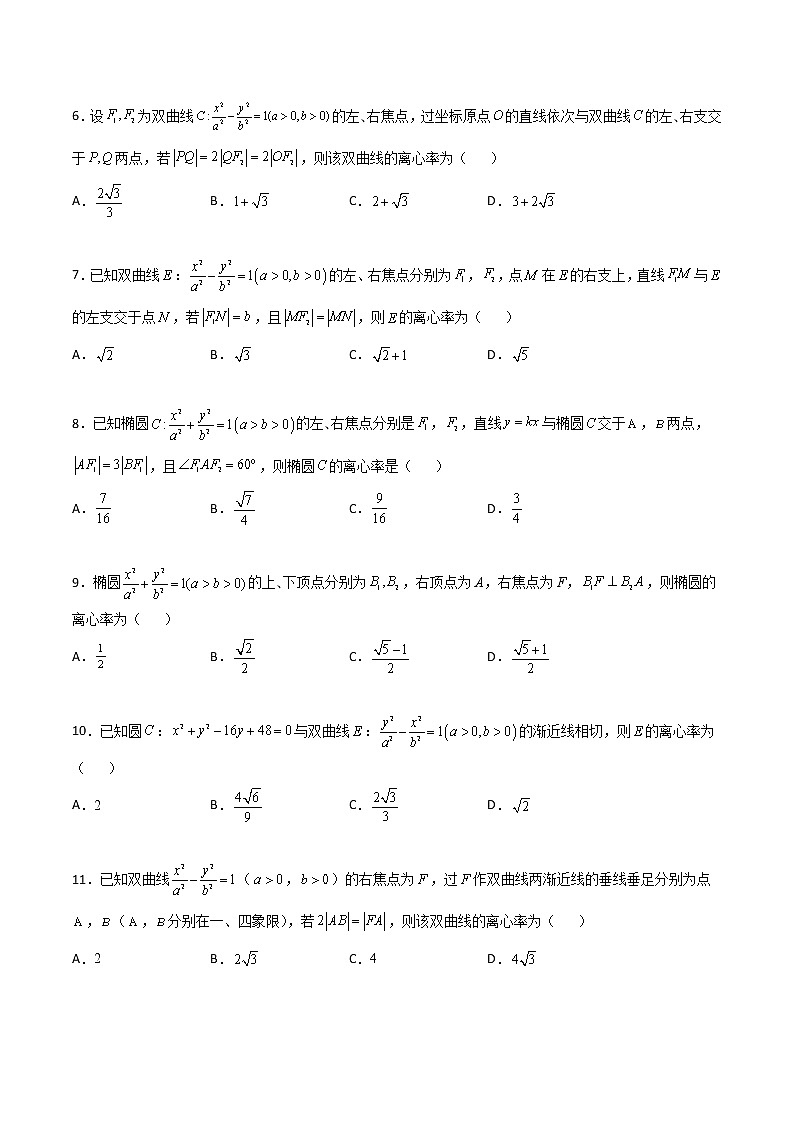 6．设F₁,F₂为双曲线C:x²/a²−y²/b²=1(a>0,b>0)的左、右焦点，过坐标原点O的直线依次与双曲线C的左、右支交
于P,Q两点，若|PQ|=2|QF₂|=2|OF₂|，则该双曲线的离心率为（  ）
A．2√3/3 B．1+√3 C．2+√3 D．3+2√3
7．已知双曲线E:x²/a²−y²/b²=1(a>0,b>0)的左、右焦点分别为F₁，F₂,点M在E的右支上，直线F₁M与E
的左支交于点N,若|F₁N|=b，且|MF₂|=|MN|,则E的离心率为（  ）
A．√2 B．√3 C．√2+1 D．√5
8．已知椭圆C:x²/a²+y²/b²=1(a>b>0)的左、右焦点分别是F₁，F₂,直线y=kx与椭圆C交于A，B两点，
|AF₁|=3|BF₁|,且∠F₁AF₂=60°，则椭圆C的离心率是（  ）
A．7/16 B．√7/4 C．9/16 D．3/4
9．椭圆x²/a²+y²/b²=1(a>b>0)的上、下顶点分别为B₁,B₂，右顶点为A，右焦点为F，B₁F⊥B₂A，则椭圆的
离心率为（  ）
A．1/2 B．√2/2 C．(√5−1)/2 D．(√5+1)/2
10．已知圆C：x²+y²−16y+48=0与双曲线E：y²/a²−x²/b²=1(a>0,b>0)的渐近线相切，则E的离心率为
（  ）
A．2 B．4√6/9 C．2√3/3 D．√2
11．已知双曲线x²/a²−y²/b²=1（a>0，b>0）的右焦点为F,过F作双曲线两渐近线的垂线垂足分别为点
A，B（A，B分别在一、四象限），若2|AB|=|FA|，则该双曲线的离心率为（  ）
A．2 B．2√3 C．4 D．4√3